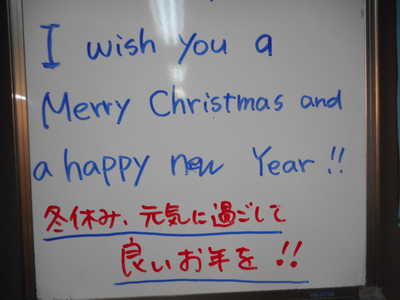 I wish you a
Merry Christmas and
a happy new Year!!
冬休み、元気に過ごして
良いお年を!!